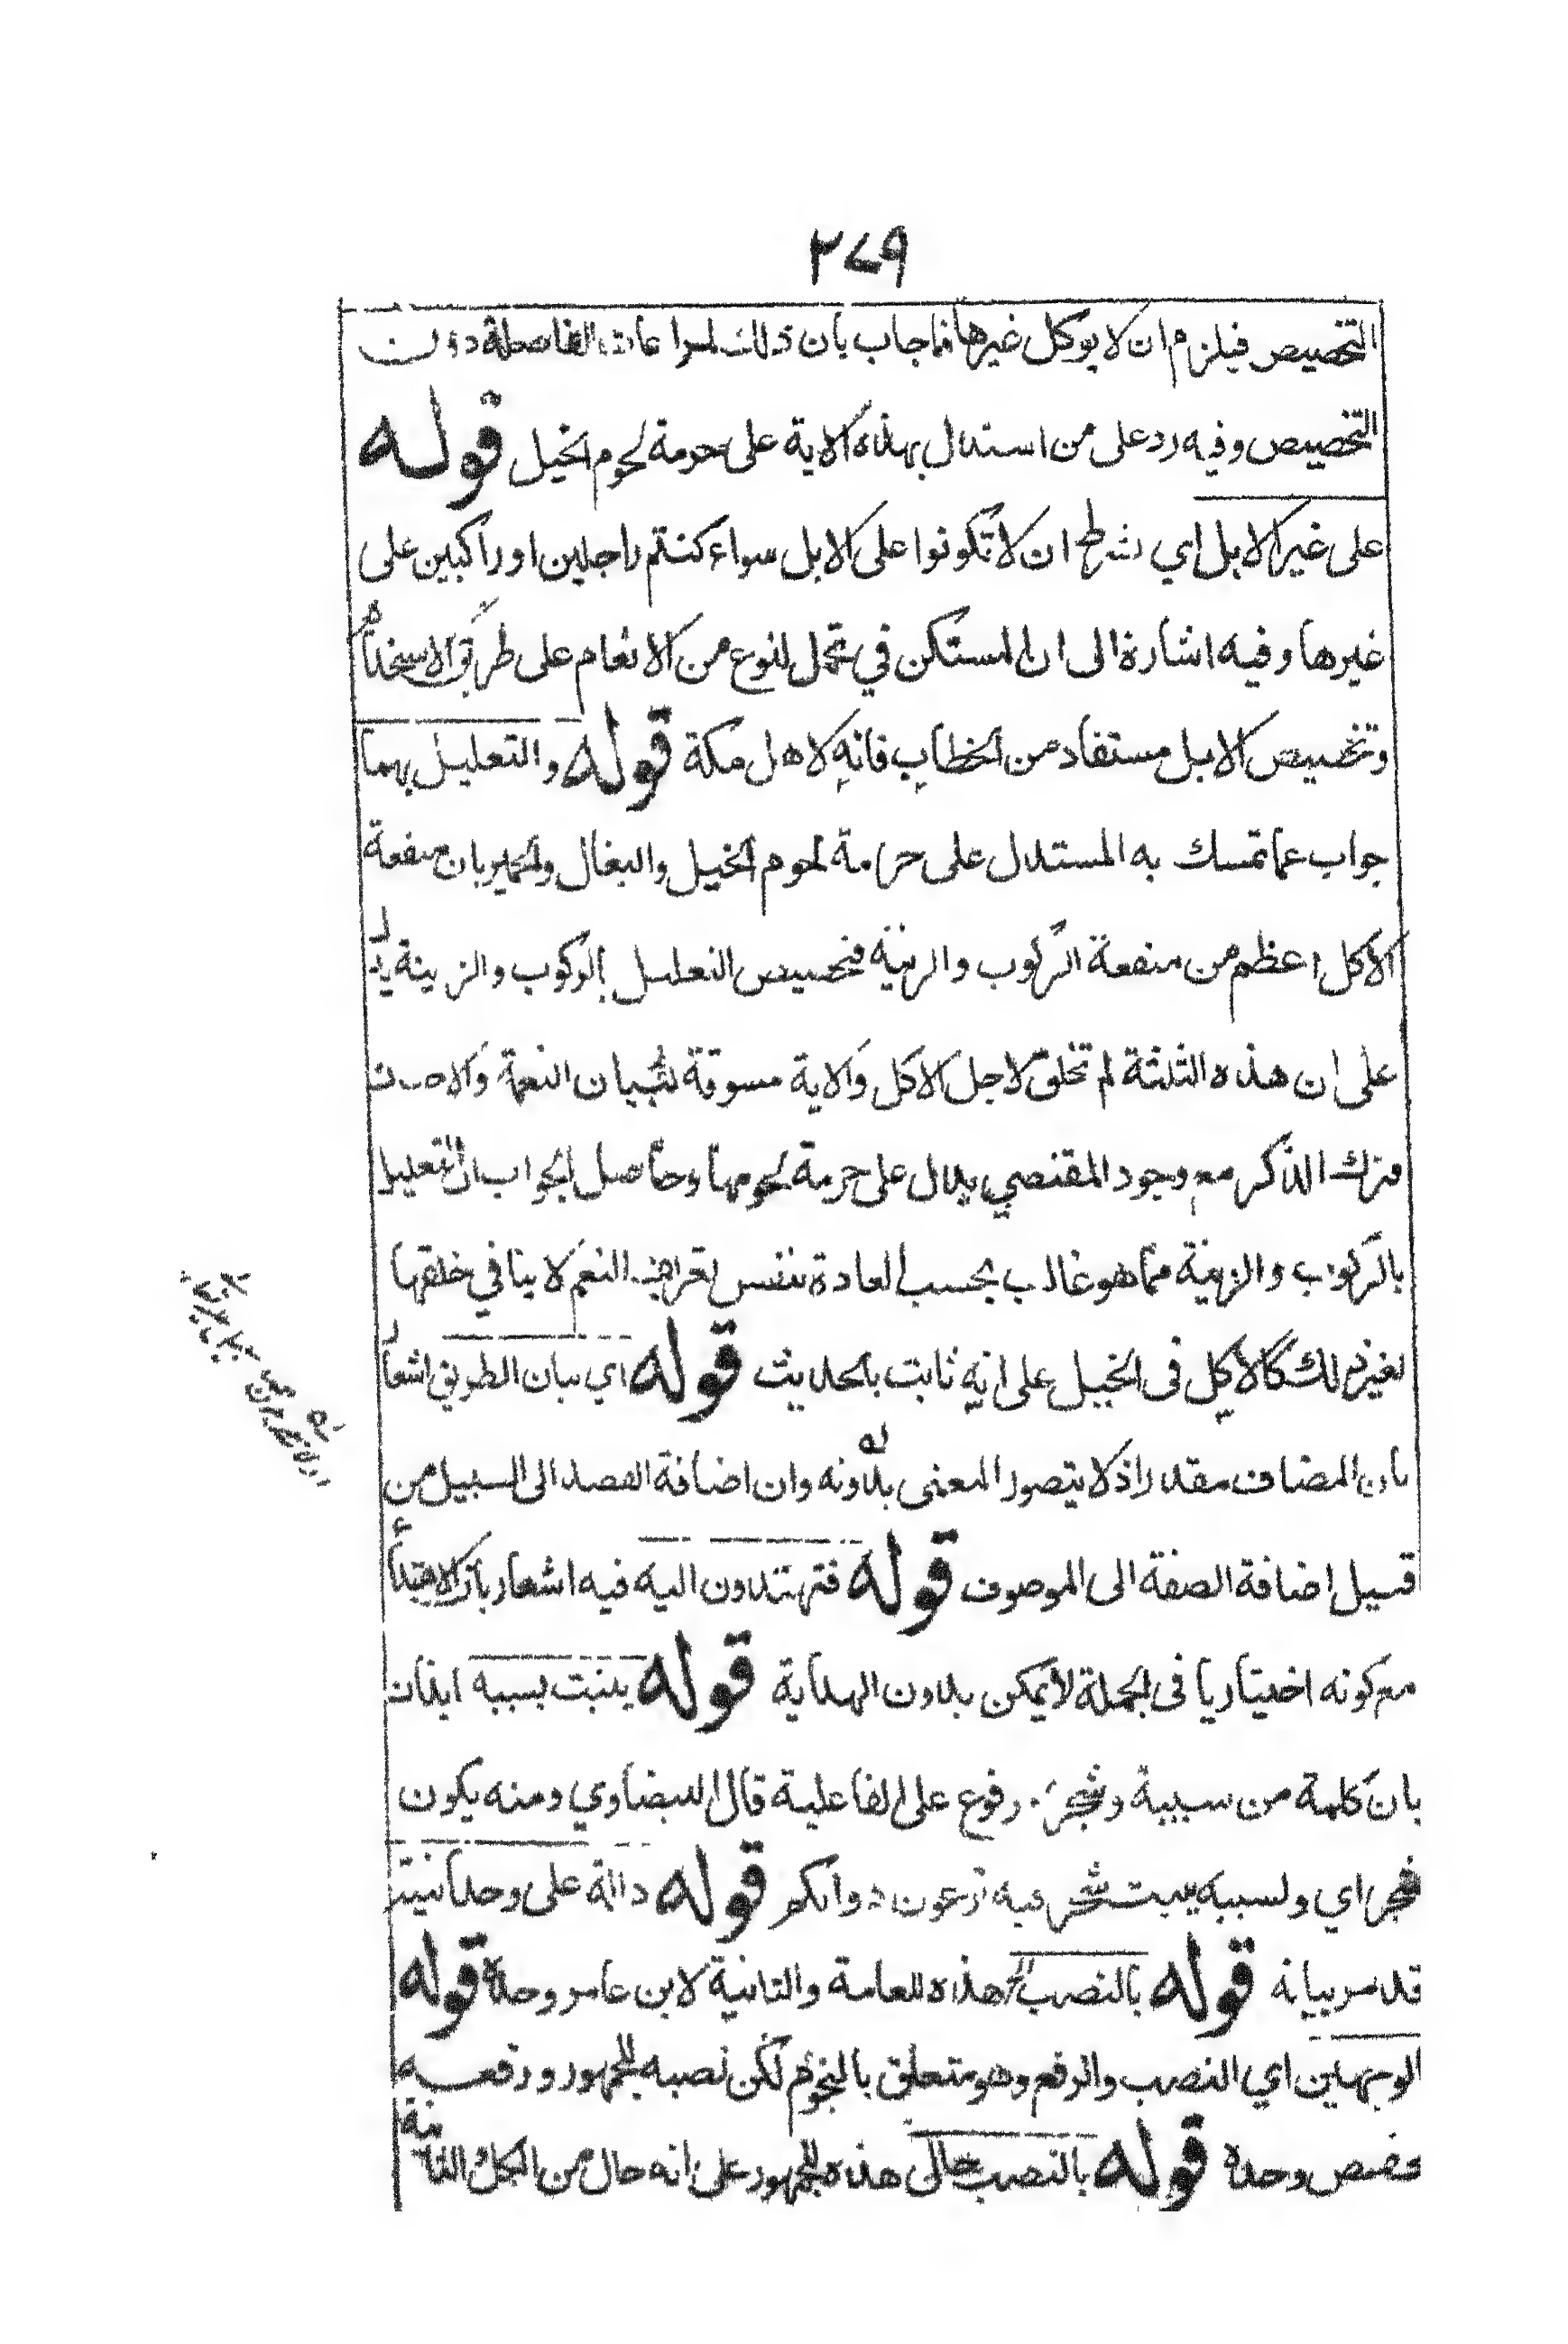 ٢٧٩
التخصيص فيلزم ان لا يوكل غيرها فاجاب بان ذلك لمراعات الفاصلة دون
التخصيص وفيه رد على من استدل بهذه الاية على حرمة لحوم الخيل قوله
على غير الابل اي بشرط ان لا تكونوا على الابل سواء كنتم راجلين او راكبين على
غيرها وفيه اشارة الى ان المستكن في تحمل لنوع من الانعام على طريق الاستخدام
وتخصيص الابل مستفاد من الخطاب فانه لاهل مكة قوله والتعليل بهما
جواب عما تمسك به المستدل على حرامة لحوم الخيل والبغال والحمير بان منفعة
الاكل اعظم من منفعة الركوب والزينة فتخصيص التعليل بالركوب والزينة يدل
على ان هذه الثلثة لم تخلق لاجل الاكل والاية مسوقة لبيان النعمة
فترك الذكر مع وجود المقتضي يدل على حرمة لحومها وحاصل الجواب ان التعليل
بالركوب والزينة مما هو غالب بحسب العادة النعم لا ينافي خلقتها
لغير ذلك كالاكل في الخيل على انه ثابت بالحديث قوله اي بيان الطريق اشعار
بان المضاف مقدر اذ لا يتصور المعنى بدونه وان اضافة القصد الى السبيل من
قبيل اضافة الصفة الى الموصوف قوله فتهتدون اليه فيه اشعار بان الاهتداء
مع كونه اختياريا في الجملة لا يمكن بدون الهداية قوله ينبت بسببه ايذان
بان كلمة من سببية وشجر مرفوع على الفاعلية قال البيضاوي ومنه يكون
شجر اي ولسببه ينبت شجر فيه ترعون دوابكم قوله دالة على وحدانيته
قد مر بيانه قوله بالنصب الخ هذه للعامة والثانية لابن عامر وحده قوله
الوجهين اي النصب والرفع وهو متعلق بالنجوم لكن نصبه للجمهور ورفعه
حفص وحده قوله بالنصب حال هذه للجمهور على انه حال من الكل الثانية